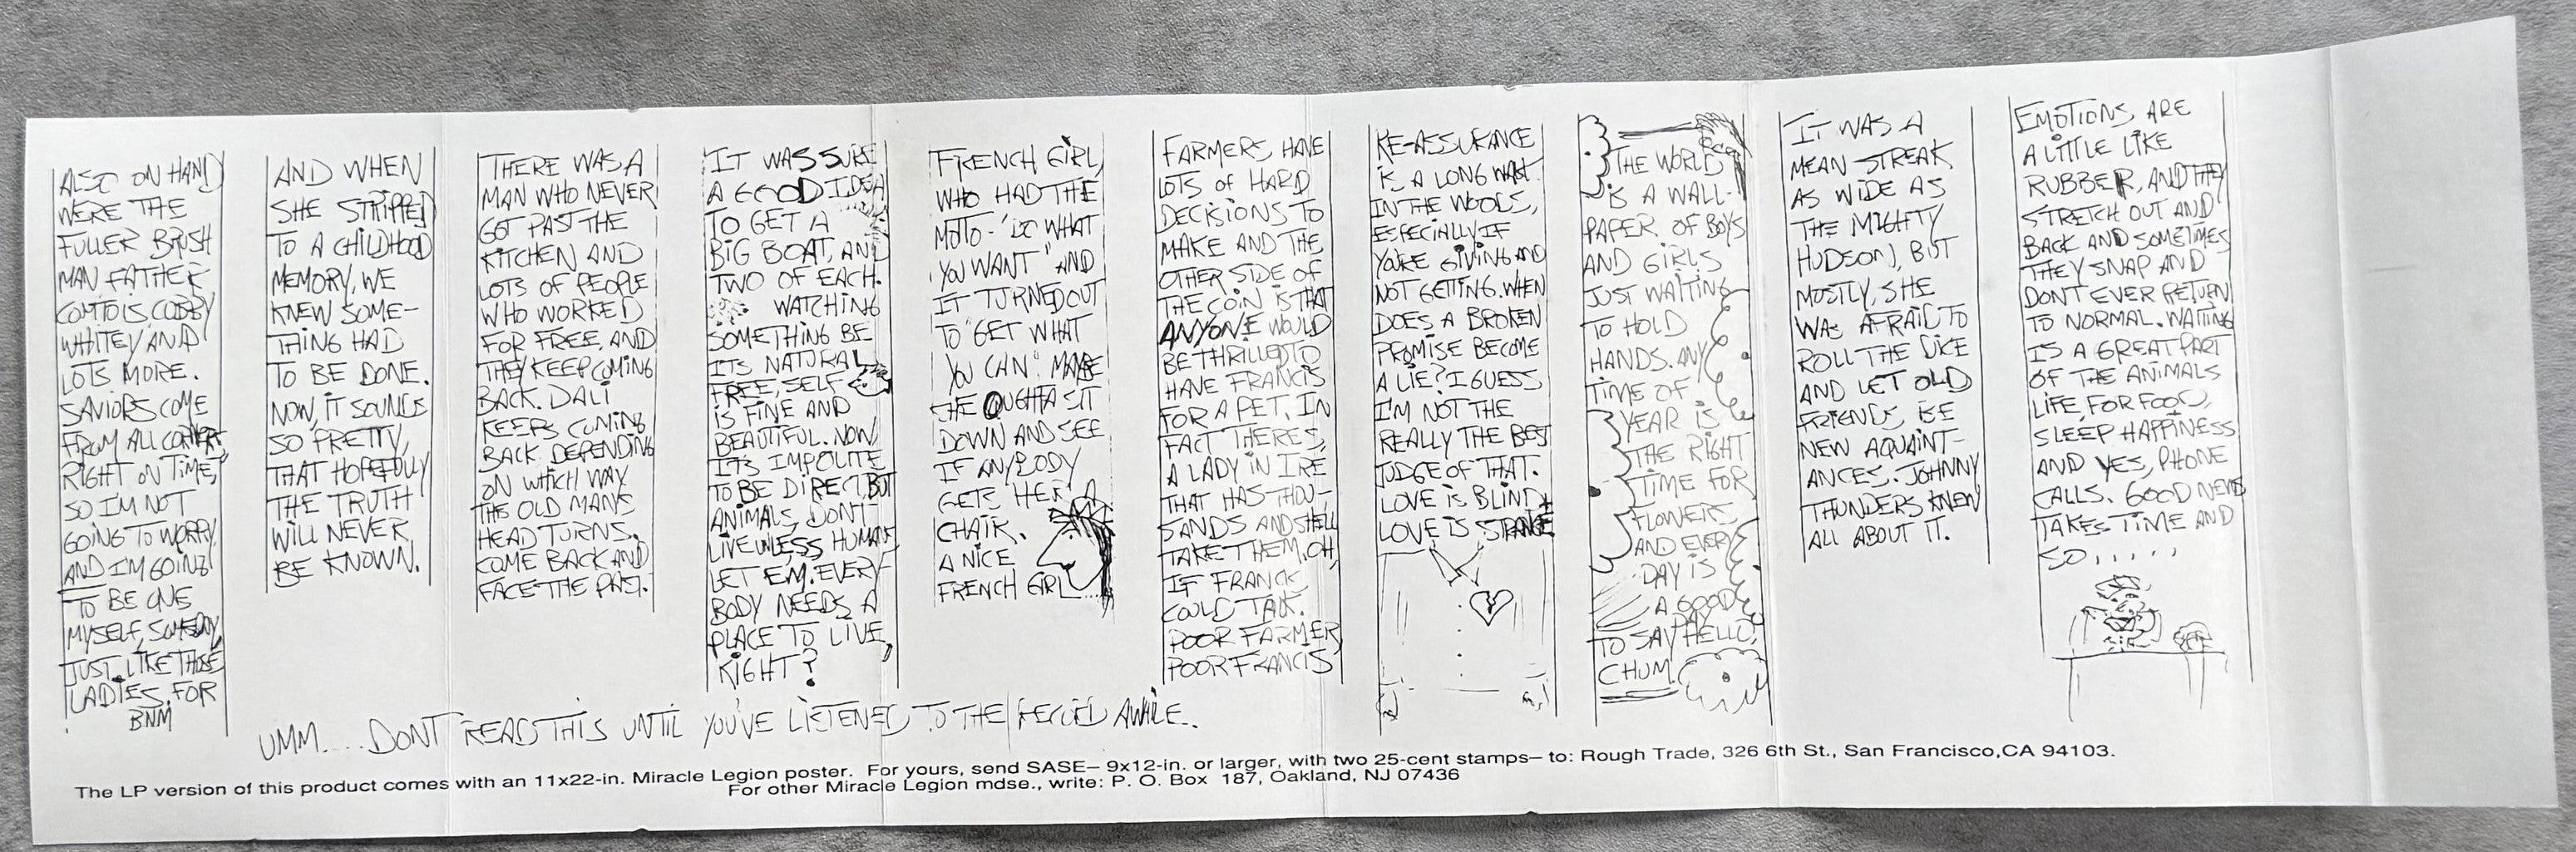 ALSO ON HAND
WERE THE
FULLER BRUSH
MAN FATHER
COMTOIS COBBY
WHITEY AND
LOTS MORE.
SAVIORS COME
FROM ALL CORNERS
RIGHT ON TIME,
SO I'M NOT
GOING TO WORRY
AND I'M GOING
TO BE ONE
MYSELF, SOMEDAY,
JUST LIKE THOSE
LADIES. FOR
BNM
AND WHEN
SHE STRIPPED
TO A CHILDHOOD
MEMORY, WE
KNEW SOME-
THING HAD
TO BE DONE.
NOW, IT SOUNDS
SO PRETTY,
THAT HOPEFULLY
THE TRUTH
WILL NEVER
BE KNOWN.
THERE WAS A
MAN WHO NEVER
GOT PAST THE
KITCHEN AND
LOTS OF PEOPLE
WHO WORKED
FOR FREE, AND
THEY KEEP COMING
BACK. DALI
KEEPS COMING
BACK. DEPENDING
ON WHICH WAY
THE OLD MANS
HEAD TURNS.
COME BACK AND
FACE THE PAST.
IT WAS SURE
A GOOD IDEA
TO GET A
BIG BOAT, AND
TWO OF EACH.
WATCHING
SOMETHING BE
ITS NATURAL
FREE, SELF
IS FINE AND
BEAUTIFUL. NOW
IT'S IMPOLITE
TO BE DIRECT, BUT
ANIMALS, DONT
LIVE UNLESS HUMANS
LET EM. EVERY-
BODY NEEDS A
PLACE TO LIVE,
RIGHT?
FRENCH GIRL,
WHO HAD THE
MOTTO - "DO WHAT
YOU WANT" AND
IT TURNED OUT
TO "GET WHAT
YOU CAN". MAYBE
SHE OUGHTA SIT
DOWN AND SEE
IF ANYBODY
GETS HER A
CHAIR.
A NICE
FRENCH GIRL
FARMERS, HAVE
LOTS OF HARD
DECISIONS TO
MAKE AND THE
OTHER SIDE OF
THE COIN IS THAT
ANYONE WOULD
BE THRILLED TO
HAVE FRANCIS
FOR A PET. IN
FACT THERES,
A LADY IN IRE
THAT HAS THOU-
SANDS AND SHE'LL
TAKE THEM. OH,
IF FRANCIS
COULD TALK.
POOR FARMER,
POOR FRANCIS
RE-ASSURANCE
IS A LONG WALK
IN THE WOODS,
ESPECIALLY IF
YOU'RE GIVING AND
NOT GETTING. WHEN
DOES A BROKEN
PROMISE BECOME
A LIE? I GUESS
I'M NOT THE
REALLY THE BEST
JUDGE OF THAT.
LOVE IS BLIND +
LOVE IS STRANGE
THE WORLD
IS A WALL-
PAPER OF BOYS
AND GIRLS
JUST WAITING
TO HOLD
HANDS. ANY
TIME OF
YEAR IS
THE RIGHT
TIME FOR
FLOWERS,
AND EVERY
DAY IS
A GOOD
DAY
TO SAY HELLO,
CHUM.
IT WAS A
MEAN STREAK
AS WIDE AS
THE MIGHTY
HUDSON, BUT
MOSTLY, SHE
WAS AFRAID TO
ROLL THE DICE
AND LET OLD
FRIENDS, BE
NEW AQUAINT-
ANCES. JOHNNY
THUNDERS KNEW
ALL ABOUT IT.
EMOTIONS, ARE
A LITTLE LIKE
RUBBER, AND THEY
STRETCH OUT AND
BACK AND SOMETIMES
THEY SNAP AND
DONT EVER RETURN
TO NORMAL. WAITING
IS A GREAT PART
OF THE ANIMALS
LIFE, FOR FOOD,
SLEEP HAPPINESS
AND YES, PHONE
CALLS. GOOD NEWS
TAKES TIME AND
SO.....
UMM.... DONT READ THIS UNTIL YOU'VE LISTENED TO THE RECORD AWHILE.
The LP version of this product comes with an 11x22-in. Miracle Legion poster. For yours, send SASE– 9x12-in. or larger, with two 25-cent stamps– to: Rough Trade, 326 6th St., San Francisco,CA 94103.
For other Miracle Legion mdse., write: P. O. Box 187, Oakland, NJ 07436